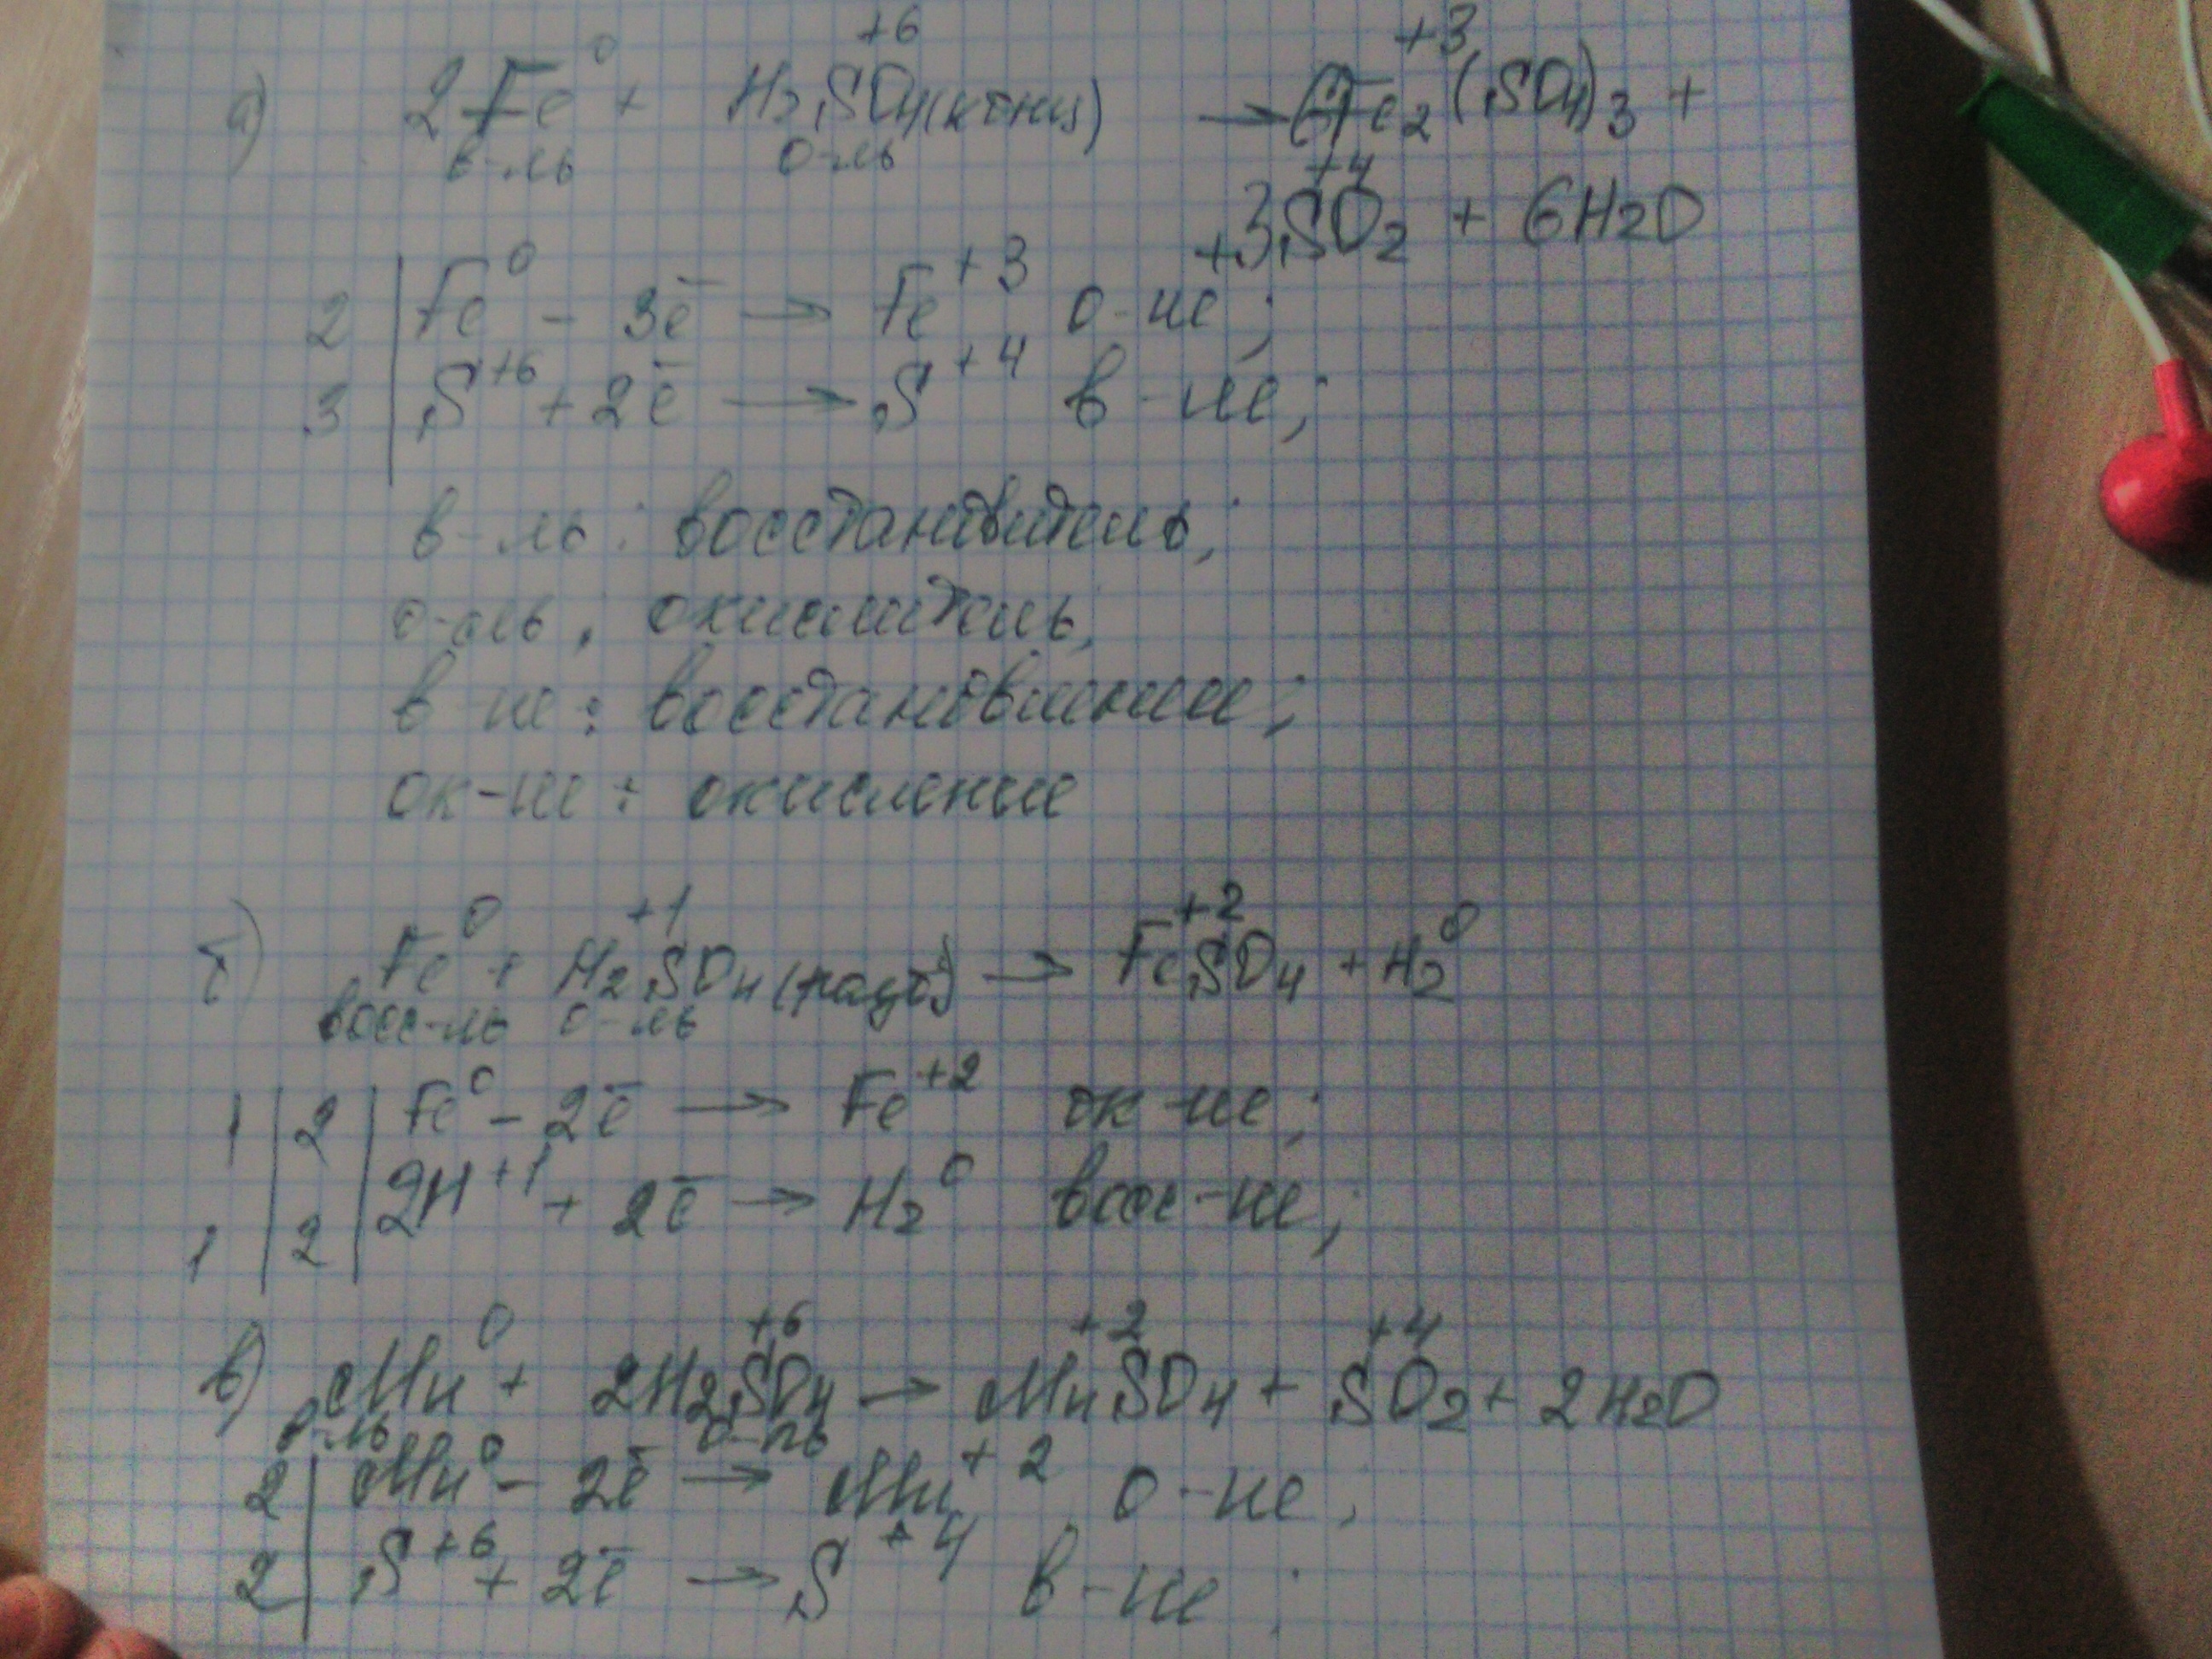 а) 2Fe⁰ + H₂S⁺⁶O₄(конц) → Fe₂⁺³(SO₄)₃ +
в-ль о-ль
+ 3S⁺⁴O₂ + 6H₂O
2 | Fe⁰ - 3ē → Fe⁺³ о-ие;
3 | S⁺⁶ + 2ē → S⁺⁴ в-ие;
в-ль: восстановитель;
о-ль: окислитель;
в-ие: восстановление;
ок-ие: окисление
б) Fe⁰ + H₂⁺¹SO₄(разб) → Fe⁺²SO₄ + H₂⁰
восс-ль о-ль
1 | 2 | Fe⁰ - 2ē → Fe⁺² ок-ие;
1 | 2 | 2H⁺¹ + 2ē → H₂⁰ восс-ие;
в) Mn⁰ + 2H₂S⁺⁶O₄ → Mn⁺²SO₄ + S⁺⁴O₂ + 2H₂O
в-ль о-ль
2 | Mn⁰ - 2ē → Mn⁺² о-ие;
2 | S⁺⁶ + 2ē → S⁺⁴ в-ие;